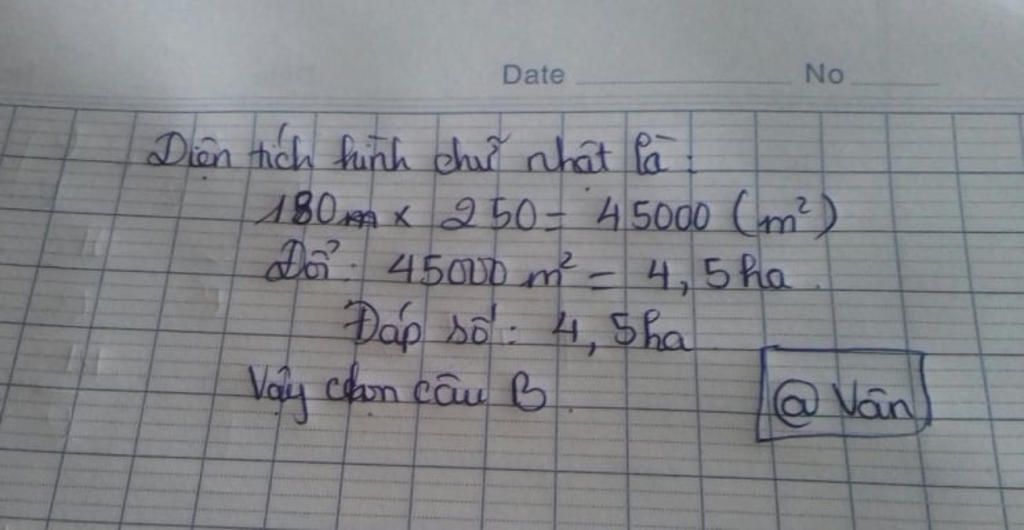 Date No
Diện tích hình chữ nhật là:
180m x 250 = 45000 (m²)
Đổi: 45000 m² = 4,5ha.
Đáp số: 4,5ha
Vậy chọn câu B.
@ Vân